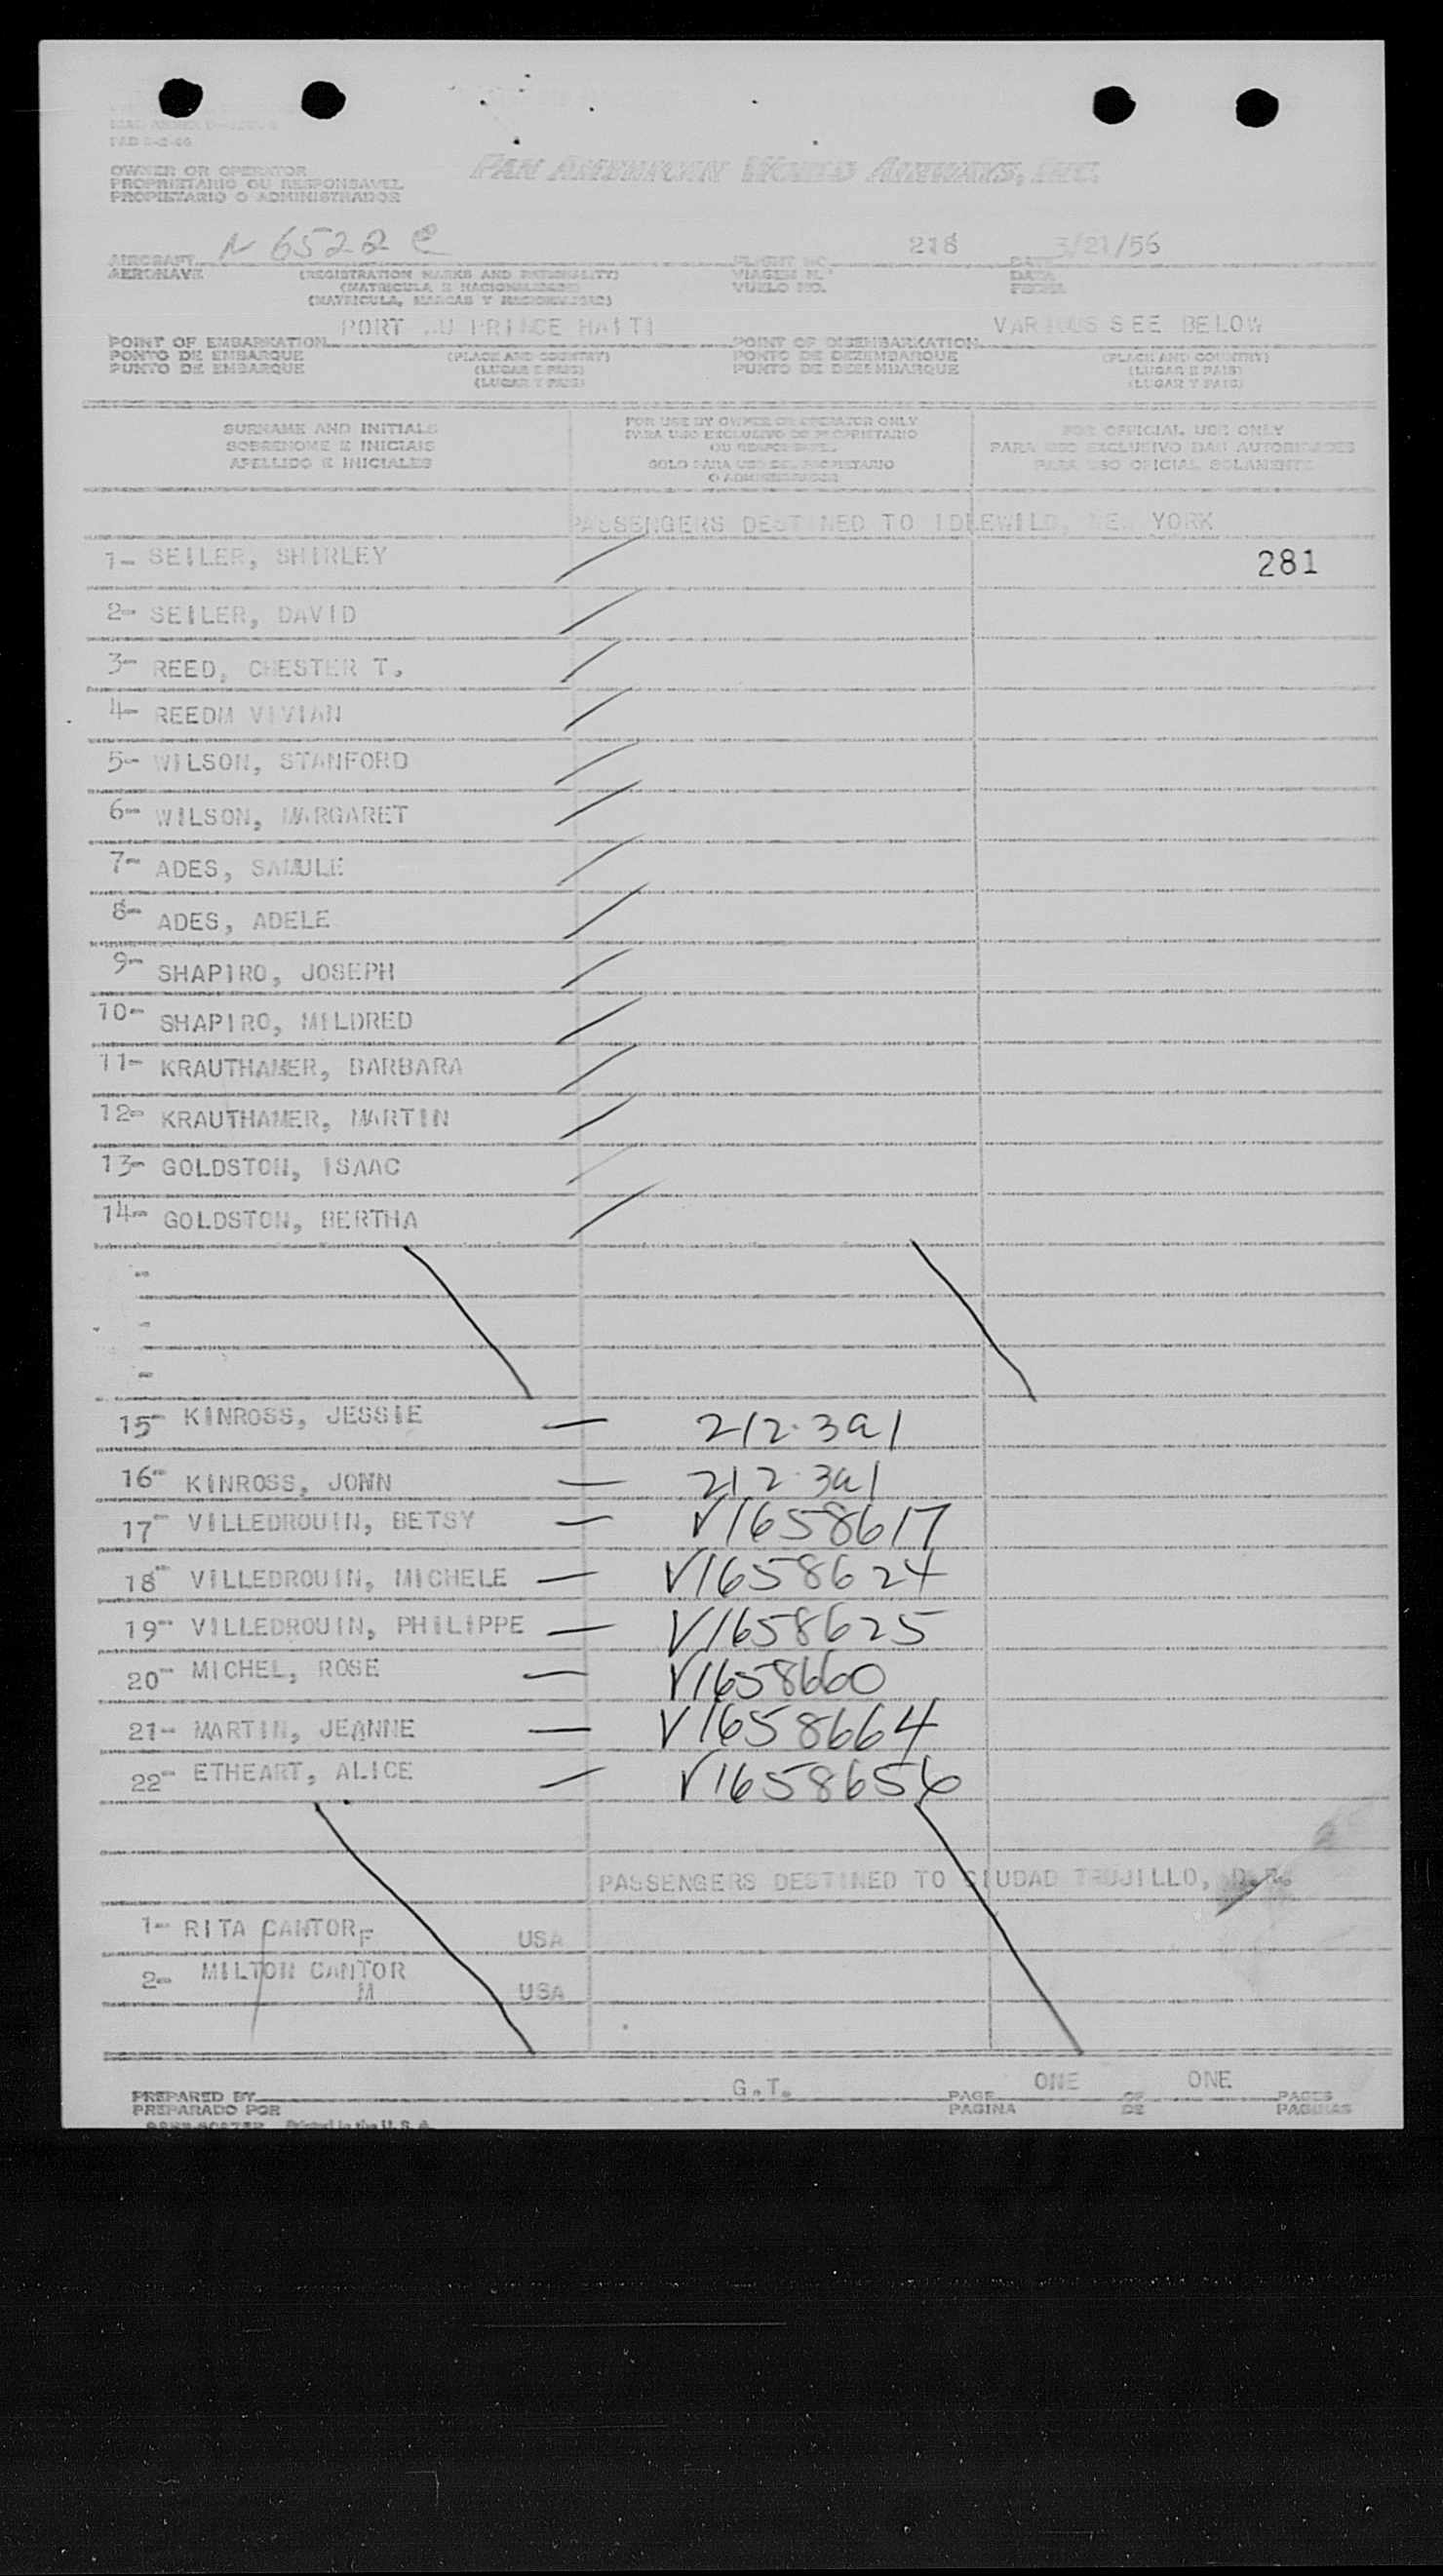 OWNER OR OPERATOR
PROPRIETARIO OU RESPONSAVEL
PROPIETARIO O ADMINISTRADOR
PAN AMERICAN WORLD AIRWAYS, INC.
AIRCRAFT N 6522 C
AERONAVE
(REGISTRATION MARKS AND NATIONALITY)
(MATRICULA E NACIONALIDADE)
(MATRICULA, MARCAS Y NACIONALIDAD)
FLIGHT NO. 218
VIAGEM N.º
VUELO NO.
DATE 3/21/56
DATA
FECHA
POINT OF EMBARKATION PORT AU PRINCE HAITI
PONTO DE EMBARQUE
PUNTO DE EMBARQUE
(PLACE AND COUNTRY)
(LUGAR E PAIS)
(LUGAR Y PAIS)
POINT OF DISEMBARKATION VARIOUS SEE BELOW
PONTO DE DEZEMBARQUE
PUNTO DE DESEMBARQUE
(PLACE AND COUNTRY)
(LUGAR E PAIS)
(LUGAR Y PAIS)
SURNAME AND INITIALS
SOBRENOME E INICIAIS
APELLIDO E INICIALES
FOR USE BY OWNER OR OPERATOR ONLY
PARA USO EXCLUSIVO DO PROPRIETARIO
OU RESPONSAVEL
SOLO PARA USO DEL PROPIETARIO
O ADMINISTRADOR
FOR OFFICIAL USE ONLY
PARA USO EXCLUSIVO DAS AUTORIDADES
PARA USO OFICIAL SOLAMENTE
PASSENGERS DESTINED TO IDLEWILD, NEW YORK
1- SEILER, SHIRLEY 281
2- SEILER, DAVID
3- REED, CHESTER T.
4- REEDM VIVIAN
5- WILSON, STANFORD
6- WILSON, MARGARET
7- ADES, SAMULE
8- ADES, ADELE
9- SHAPIRO, JOSEPH
10- SHAPIRO, MILDRED
11- KRAUTHAMER, BARBARA
12- KRAUTHAMER, MARTIN
13- GOLDSTON, ISAAC
14- GOLDSTON, BERTHA
-
-
-
15- KINROSS, JESSIE — 212.3a1
16- KINROSS, JONN — 212.3a1
17- VILLEDROUIN, BETSY — V1658617
18- VILLEDROUIN, MICHELE — V1658624
19- VILLEDROUIN, PHILIPPE — V1658625
20- MICHEL, ROSE — V1658660
21- MARTIN, JEANNE — V1658664
22- ETHEART, ALICE — V1658656
PASSENGERS DESTINED TO CIUDAD TRUJILLO, D.R.
1- RITA CANTOR F USA
2- MILTON CANTOR M USA
PREPARED BY G.T. PAGE ONE OF ONE PAGES
PREPARADO POR PAGINA DE PAGINAS
Printed in the U. S. A.